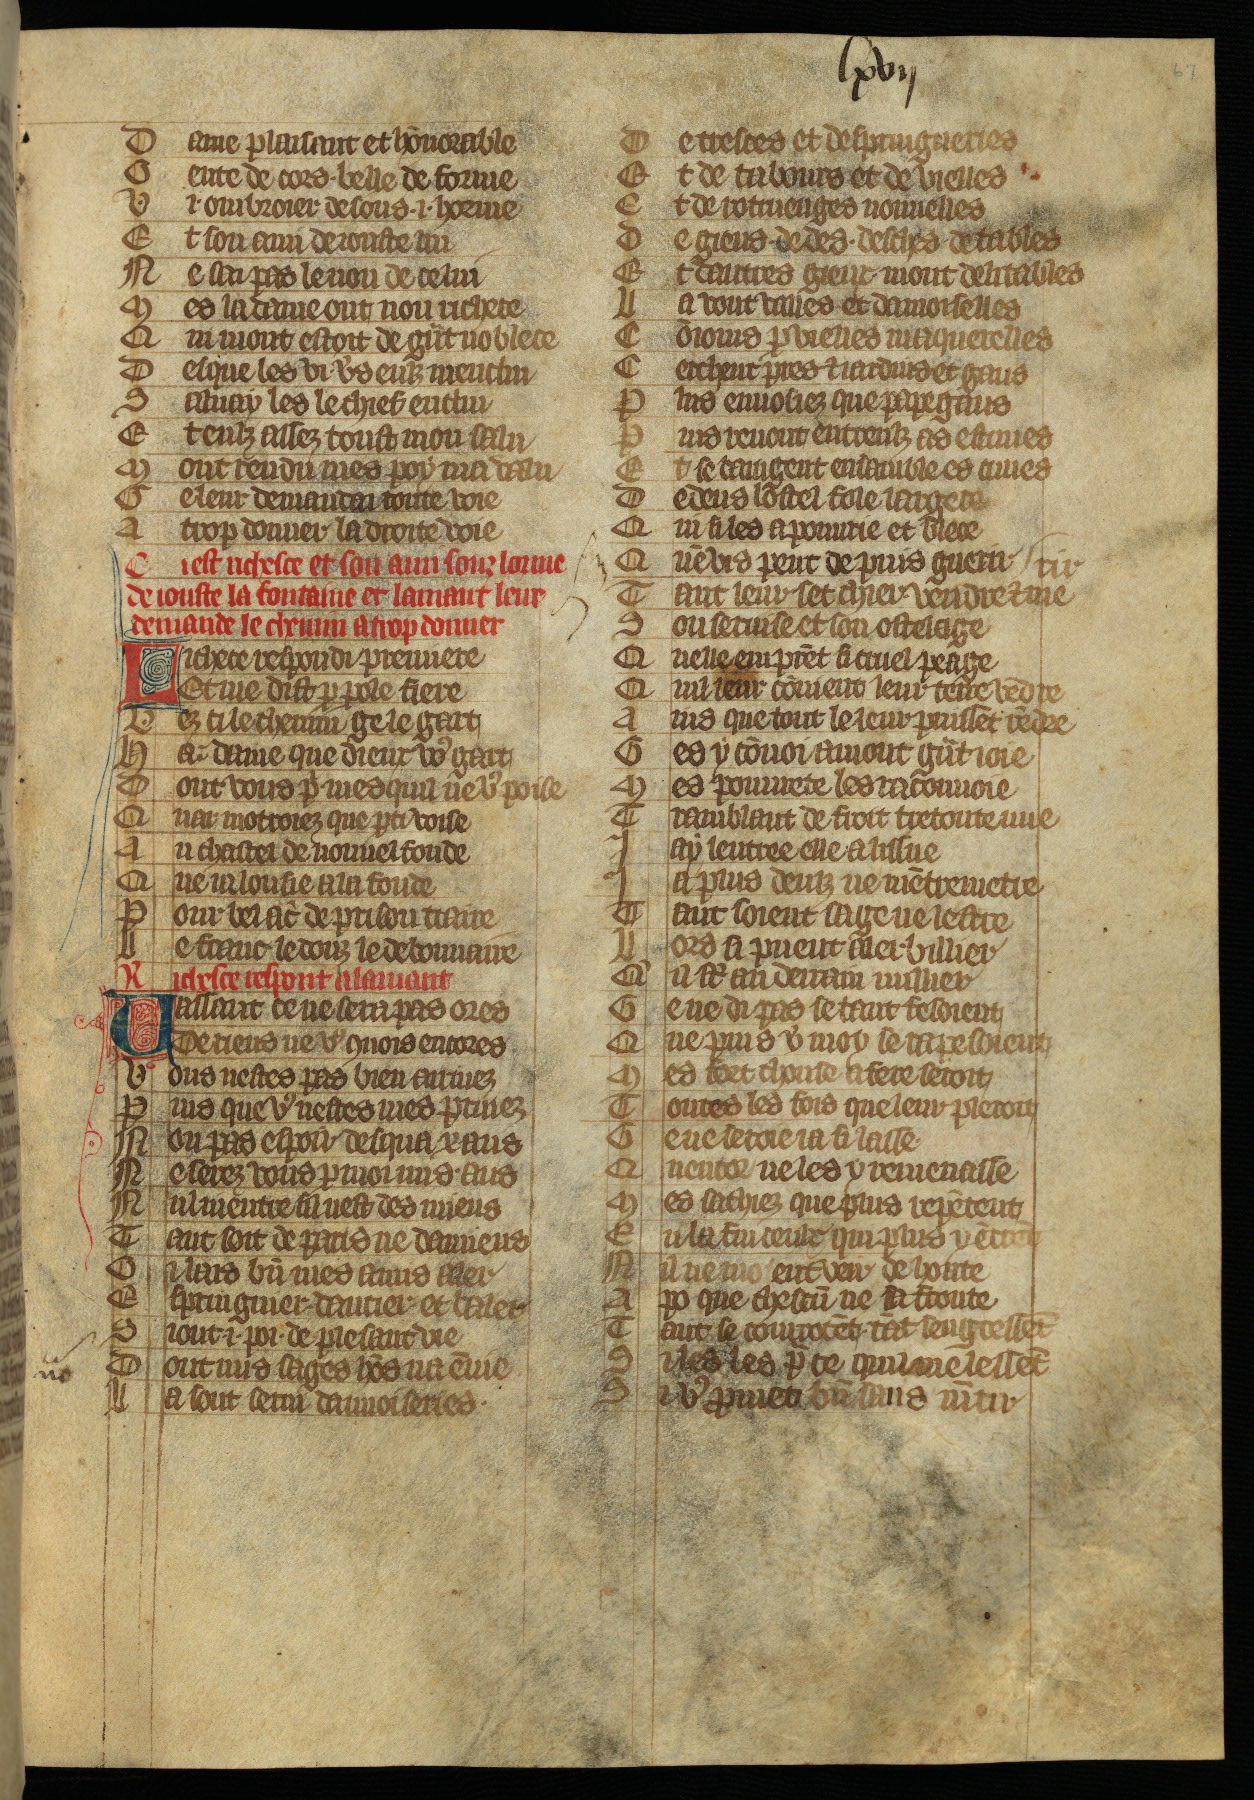 lxvij
67
D ame plaisant et hōnorable
G ente de cors. belle de forme
V i. ombroier desous .i. horme
E t son ami de iouste lui
N e sai pas le non de celui
M es la dame out non richece
Q ui mont estoit de gñt noblece
D esque les vi v̓s eulz menclin
S aluay les le chief enclin
E t eulz assez toust mon salu
M ont rendu mes poy ma valu
G e leur demandai toute voie
A trop donner la droite voie
C i est richesce et son ami souz lorme
de iouste la fontaine et lamant leur
demande le chemin a trop donner
R ichece respondi premiere
Et me dist p pole fiere
V ez ci le chemin ge le gart
H a dame que dieux vo᷒ gart
D ont vous p mes quil ne v᷒ poise
Q uar motroiez que p ci voise
A u chastel de nouuel fonde
Q ue ialousie a la fonde
P our bel ac̃ de prison traire
L e franc le douz le debonnaire
R ichesce respont a lamant
Uassaut ce ne sera pas ores
De riens ne v᷒ qnois encores
V ous nestes pas bien arriuez
P uis que v᷒ nestes mes priuez
N on pas espoir desqua .x. ans
N e serez vous p moi mis ans
N ul mentre sil nest des miens
T ant soit de paris ne damiens
G i lais bñ mes amis aler
E springuier. dancier. et baler
S i ont .i. poi. de plesant vie
D ont nus sages hōs na ēuie
L a sont serui damoiseries.
D e tresces et despringueries
E t de tabours et de vielles
E t de rotruenges nouuelles
D e gieus. de des. desches. de tables
E t dautres gieux. mont delitables
L a vont valles et damoiselles
C ōioins p vielles maquerelles
C erchent pres et iardins et gaus
P lus enuoisiez que papegaus
P uis reuont entreulz as estuues
E t se baingent ensamble es cuues
D edens lostel fole largece
Q ui si les apourie et blece
Q uē vis peut de puis guerir tir
T ant leur set chier vendre et me
S on seruise et son ostelage
Q uelle em prēt si cruel peage
Q uil leur cōuient leur terre vēdre
A ins que tout le leur puissēt rēdre
G es y cōuoi a mont gñt ioie
M es pouurete les racōuoie
T ramblant de froit trestoute nue
J ay lentree elle a lissue
J a plus deulz ne mētremetre
T ant soient sage ne lestre
L ors si pueent aler billier
Q il st̃ au derrain millier
G e ne di pas se tant fesoient
Q ue puis v̓ moy se rapesoient
M es fort chouse a fere seroit
T outes les fois que leur pleroit
G e ne seroie ia si lasse
Q uentor ne les y remenasse
M es sachiez que plus repentent
E n la fin ceulz qui plus y ētrēt
N il ne mo ent veir de honte
A po que chescū ne sa frōute
T ant se courrocēt. tāt sengressēt
S i les les p̄ ce quil me lessēt
S i v᷒ promet bñ sans mētir